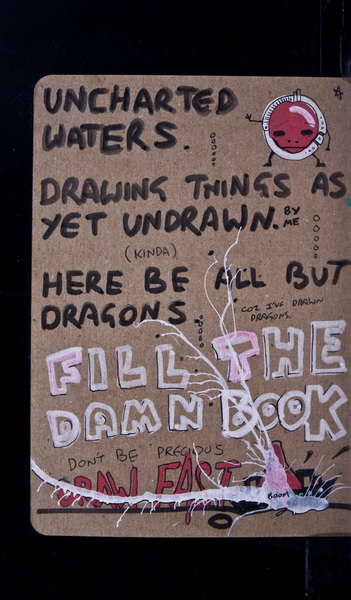 UNCHARTED
WATERS.
DRAWING THINGS AS
YET UNDRAWN. BY ME
(KINDA)
HERE BE ALL BUT
DRAGONS.
COZ I'VE DRAWN
DRAGONS.
FILL THE
DAMN BOOK
DON'T BE PRECIOUS
DRAW FAST
BOOM